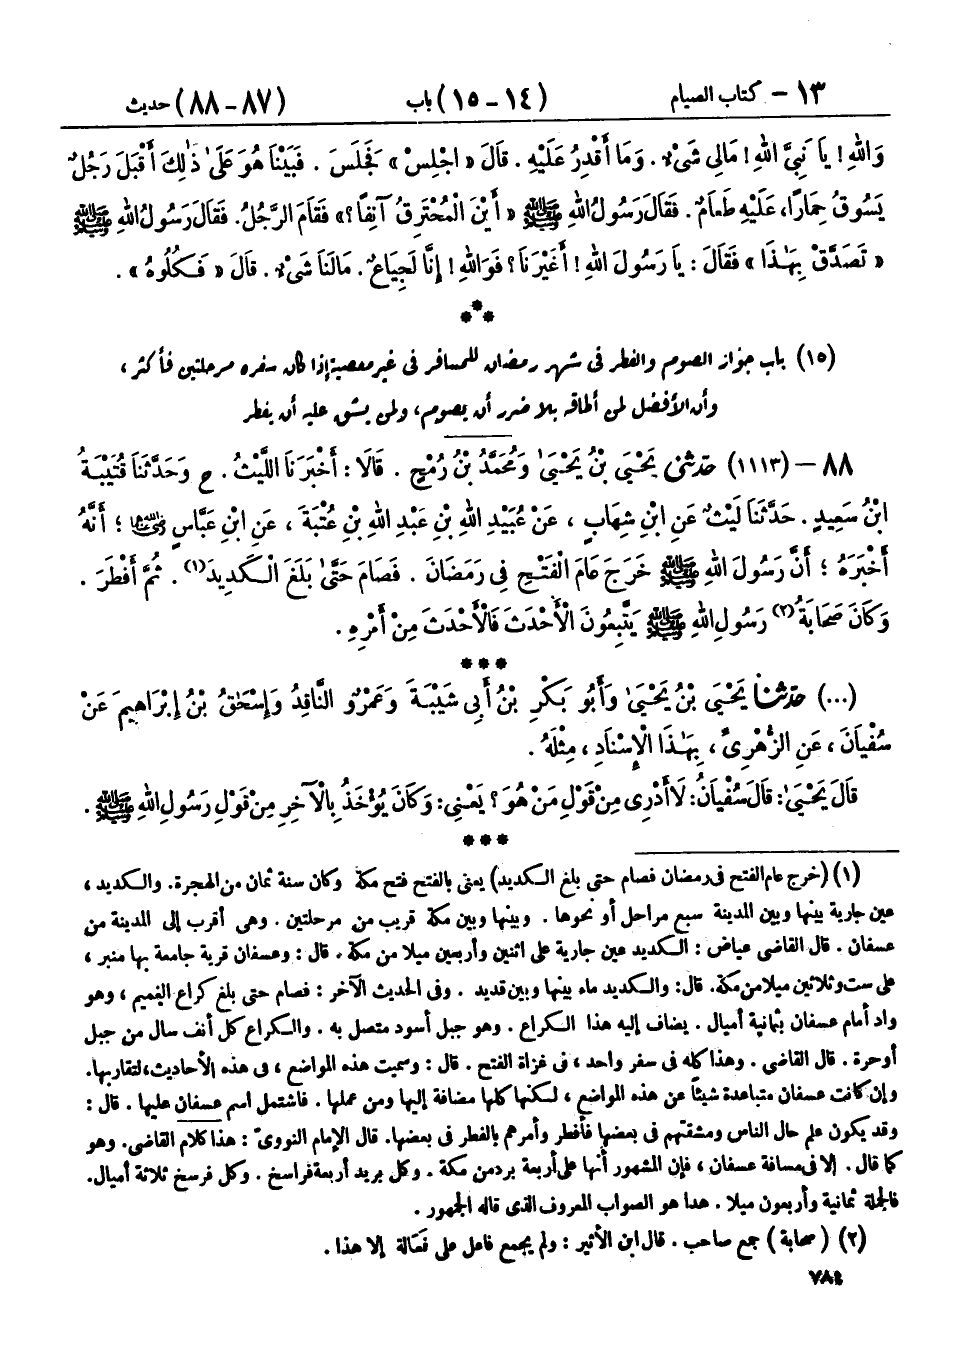 ١٣ – كتاب الصيام (١٤ – ١٥) باب (٨٧ – ٨٨) حديث
وَاللهِ! يَا نَبِيَّ اللهِ! مَالِي شَيْءٌ. وَمَا أَقْدِرُ عَلَيْهِ. قَالَ «اجْلِسْ» فَجَلَسَ. فَبَيْنَا هُوَ عَلَىٰ ذَٰلِكَ أَقْبَلَ رَجُلٌ
يَسُوقُ حِمَارًا، عَلَيْهِ طَعَامٌ. فَقَالَ رَسُولُ اللهِ ﷺ «أَيْنَ الْمُحْتَرِقُ آنِفًا؟» فَقَامَ الرَّجُلُ. فَقَالَ رَسُولُ اللهِ ﷺ
«تَصَدَّقْ بِهَٰذَا» فَقَالَ: يَا رَسُولَ اللهِ! أَغَيْرَنَا؟ فَوَاللهِ! إِنَّا لَجِيَاعٌ. مَالَنَا شَيْءٌ. قَالَ «فَكُلُوهُ».
***
(١٥) باب جواز الصوم والفطر فى شهر رمضان للمسافر فى غير معصية إذا كان سفره مرحلتين فأكثر،
وأن الأفضل لمن أطاقه بلا ضرر أن يصوم، ولمن يشق عليه أن يفطر
٨٨ – (١١١٣) حَدَّثَنِي يَحْيَى بْنُ يَحْيَىٰ وَمُحَمَّدُ بْنُ رُمْحٍ. قَالَا: أَخْبَرَنَا اللَّيْثُ. ح وَحَدَّثَنَا قُتَيْبَةُ
ابْنُ سَعِيدٍ. حَدَّثَنَا لَيْثٌ عَنِ ابْنِ شِهَابٍ، عَنْ عُبَيْدِ اللهِ بْنِ عَبْدِ اللهِ بْنِ عُتْبَةَ، عَنِ ابْنِ عَبَّاسٍ رضي الله عنهما؛ أَنَّهُ
أَخْبَرَهُ؛ أَنَّ رَسُولَ اللهِ ﷺ خَرَجَ عَامَ الْفَتْحِ فِى رَمَضَانَ. فَصَامَ حَتَّىٰ بَلَغَ الْكَدِيدَ(١). ثُمَّ أَفْطَرَ.
وَكَانَ صَحَابَةُ(٢) رَسُولِ اللهِ ﷺ يَتَّبِعُونَ الْأَحْدَثَ فَالْأَحْدَثَ مِنْ أَمْرِهِ.
***
(...) حَدَّثَنَا يَحْيَى بْنُ يَحْيَىٰ وَأَبُو بَكْرِ بْنُ أَبِى شَيْبَةَ وَعَمْرٌو النَّاقِدُ وَإِسْحَٰقُ بْنُ إِبْرَاهِيمَ عَنْ
سُفْيَانَ، عَنِ الزُّهْرِىِّ، بِهَٰذَا الْإِسْنَادِ، مِثْلَهُ.
قَالَ يَحْيَىٰ: قَالَ سُفْيَانُ: لَا أَدْرِى مِنْ قَوْلِ مَنْ هُوَ؟ يَعْنِى: وَكَانَ يُؤْخَذُ بِالْآخِرِ مِنْ قَوْلِ رَسُولِ اللهِ ﷺ.
***
(١) (خرج عام الفتح فى رمضان فصام حتى بلغ الكديد) يعنى بالفتح فتح مكة وكان سنة ثمان من الهجرة. والكديد،
عين جارية بينها وبين المدينة سبع مراحل أو نحوها. وبينها وبين مكة قريب من مرحلتين. وهى أقرب إلى المدينة من
عسفان. قال القاضى عياض: الكديد عين جارية على اثنين وأربعين ميلا من مكة. قال: وعسفان قرية جامعة بها منبر،
على ست وثلاثين ميلا من مكة. قال: والكديد ماء بينها وبين قديد. وفى الحديث الآخر: فصام حتى بلغ كراع الغميم، وهو
واد أمام عسفان بثمانية أميال. يضاف إليه هذا الكراع. وهو جبل أسود متصل به. والكراع كل أنف سال من جبل
أو حرة. قال القاضى. وهذا كله فى سفر واحد، فى غزاة الفتح. قال: وسميت هذه المواضع، فى هذه الأحاديث، لتقاربها.
وإن كانت عسفان متباعدة شيئًا عن هذه المواضع، لكنها كلها مضافة إليها ومن عملها. فاشتمل اسم عسفان عليها. قال:
وقد يكون علم حال الناس ومشقتهم فى بعضها فأفطر وأمرهم بالفطر فى بعضها. قال الإمام النووىّ: هذا كلام القاضى. وهو
كما قال. إلا فى مسافة عسفان، فإن المشهور أنها على أربعة برد من مكة. وكل بريد أربعة فراسخ. وكل فرسخ ثلاثة أميال.
فالجملة ثمانية وأربعون ميلا. هدا هو الصواب المعروف الذى قاله الجمهور.
(٢) (صحابة) جمع صاحب. قال ابن الأثير: ولم يجمع فاعل على فَعَالة إلا هذا.
٧٨٤